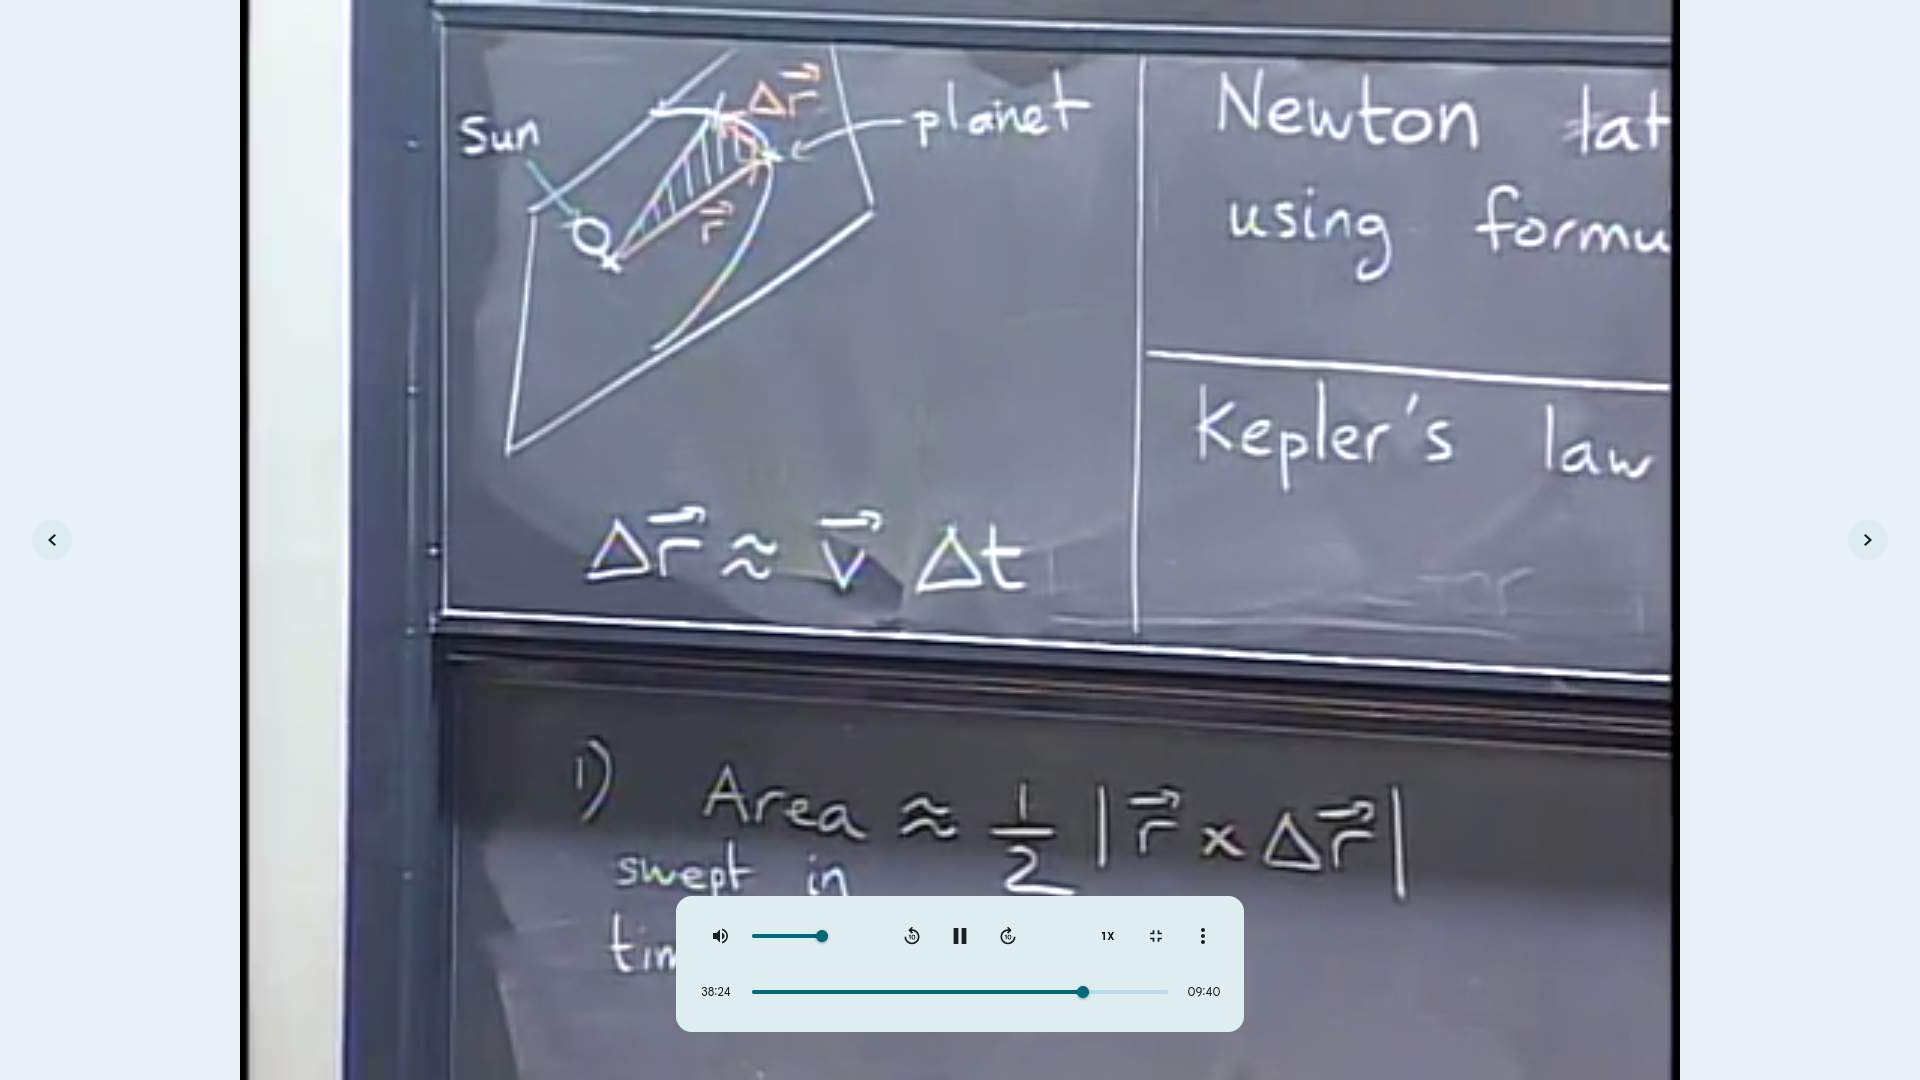 Sun
Δr⃗
planet
r⃗
Δr⃗ ≈ v⃗ Δt
Newton lat
using formu
Kepler's law
1) Area ≈ 1/2 |r⃗ x Δr⃗|
swept in
tim
10
10
1X
38:24
09:40